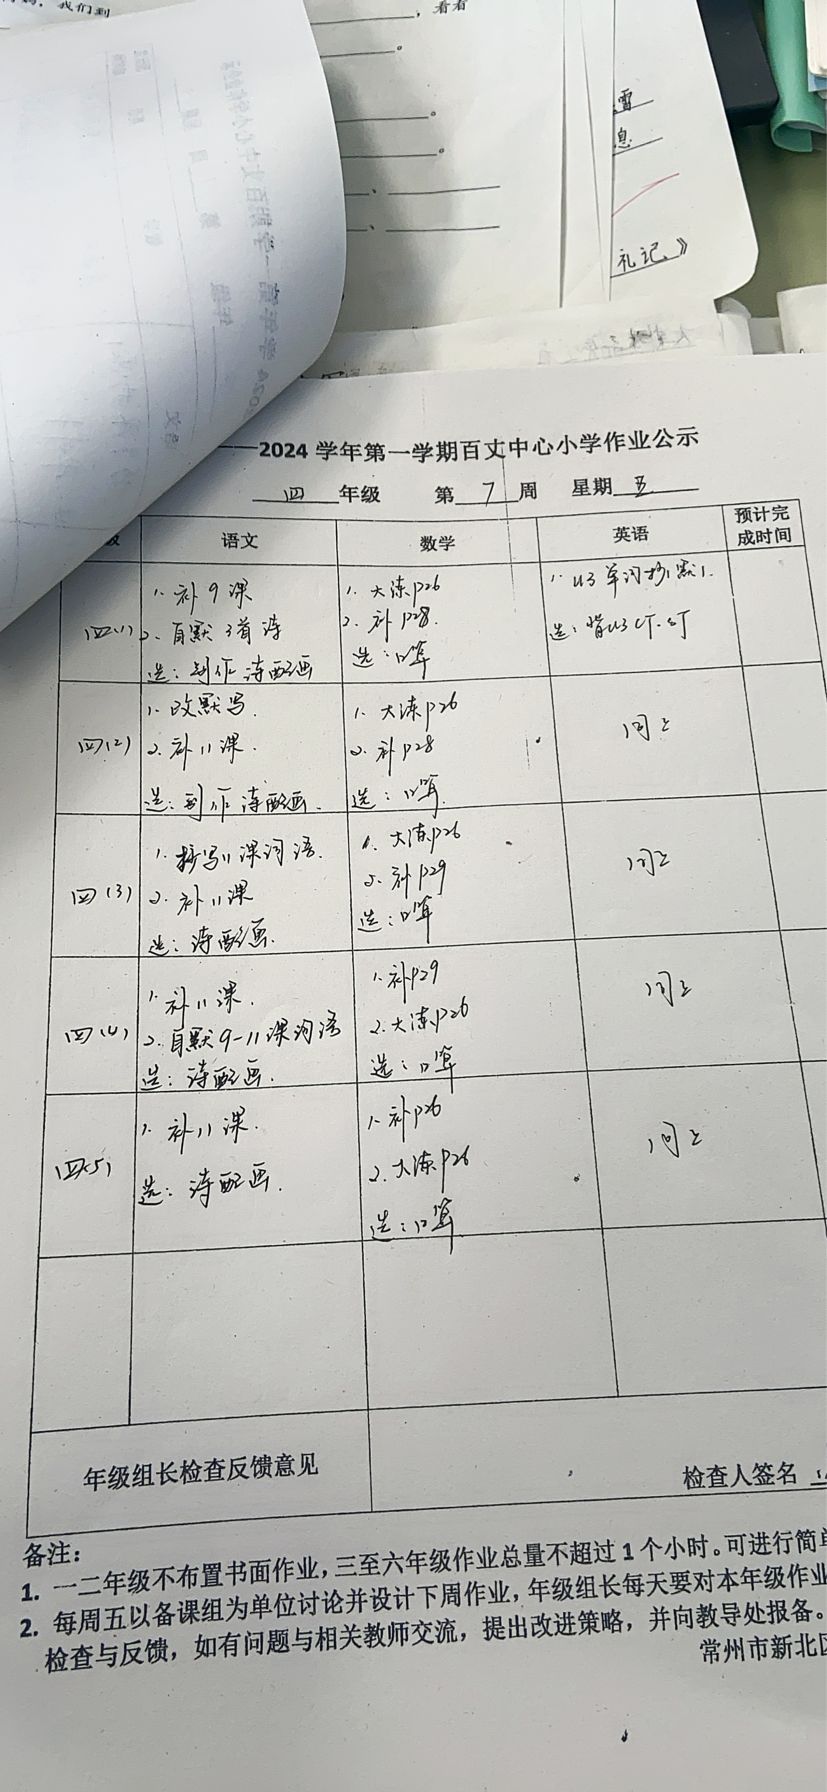 我们到
，看看
。
。
。
雪
息
礼记》
2024 学年第一学期百丈中心小学作业公示
四 年级 第 7 周 星期 五
级 语文 数学 英语 预计完成时间
四(1)
1. 补9课
2. 自默3首诗
选：创作诗配画
1. 大练P26
2. 补P28.
选：口算
1. U3单词抄1默1.
选：背U3
四(2)
1. 改默写.
2. 补11课.
选：创作诗配画.
1. 大练P26
2. 补P28
选：口算.
同上
四(3)
1. 抄写11课词语.
2. 补11课
选：诗配画.
1. 大练P26
2. 补P29
选：口算
同上
四(4)
1. 补11课.
2. 自默9-11课词语
选：诗配画.
1. 补P29
2. 大练P26
选：口算
同上
四(5)
1. 补11课.
选：诗配画.
1. 补P26
2. 大练P26
选：口算
同上
年级组长检查反馈意见
检查人签名
备注：
1. 一二年级不布置书面作业，三至六年级作业总量不超过 1 个小时。可进行简单
2. 每周五以备课组为单位讨论并设计下周作业，年级组长每天要对本年级作业
检查与反馈，如有问题与相关教师交流，提出改进策略，并向教导处报备。
常州市新北区